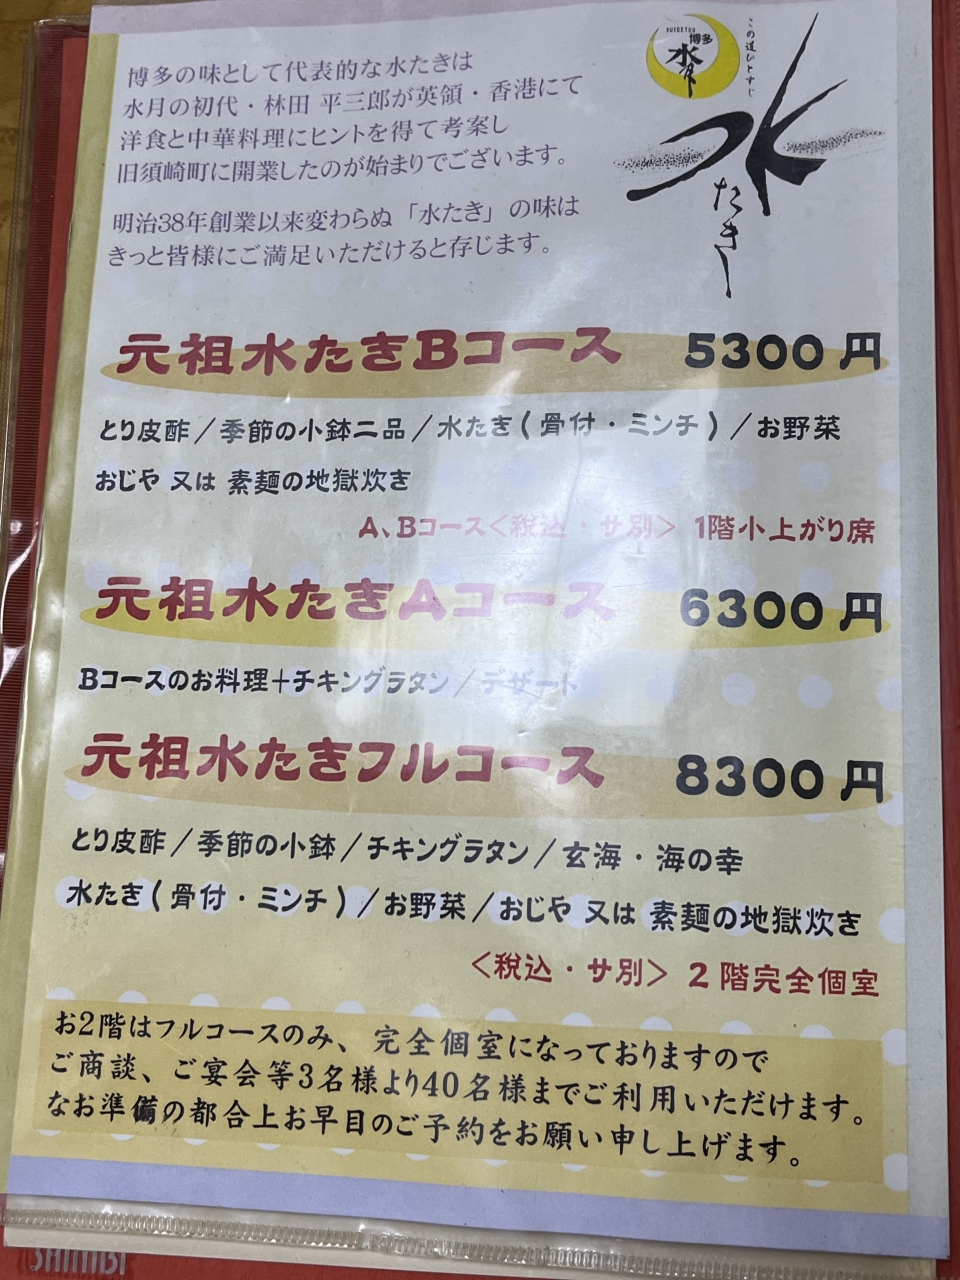 SUIGETSU
博多
水月
この道ひとすじ
水たき
博多の味として代表的な水たきは
水月の初代・林田 平三郎が英領・香港にて
洋食と中華料理にヒントを得て考案し
旧須崎町に開業したのが始まりでございます。
明治38年創業以来変わらぬ「水たき」の味は
きっと皆様にご満足いただけると存じます。
元祖水たきBコース 5300円
とり皮酢/季節の小鉢二品/水たき(骨付・ミンチ)/お野菜
おじや 又は 素麺の地獄炊き
A、Bコース<税込・サ別> 1階小上がり席
元祖水たきAコース 6300円
Bコースのお料理+チキングラタン/デザート
元祖水たきフルコース 8300円
とり皮酢/季節の小鉢/チキングラタン/玄海・海の幸
水たき(骨付・ミンチ)/お野菜/おじや 又は 素麺の地獄炊き
<税込・サ別> 2階完全個室
お2階はフルコースのみ、完全個室になっておりますので
ご商談、ご宴会等3名様より40名様までご利用いただけます。
なお準備の都合上お早目のご予約をお願い申し上げます。
SHIMBI